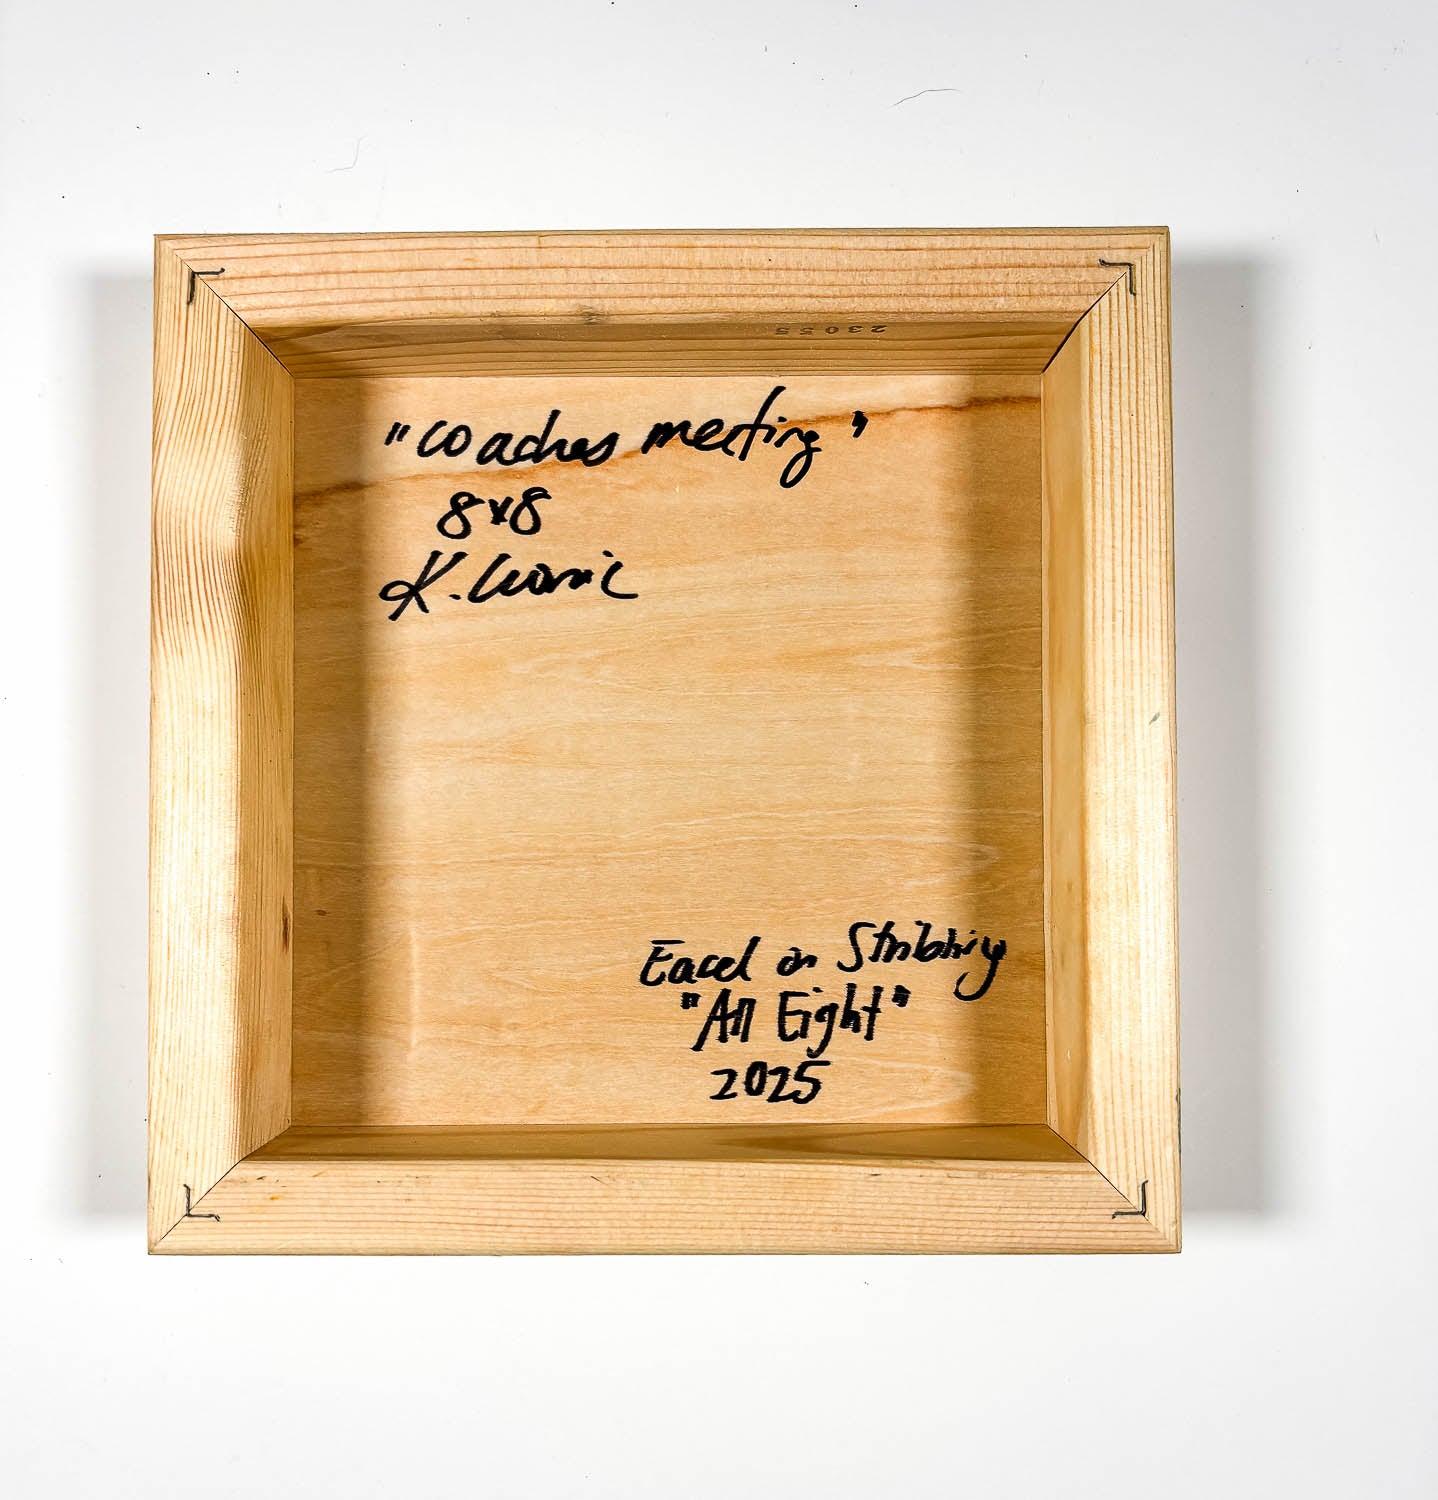 23055
"coaches meeting"
8x8
K.
Easel on Stribling
"All Eight"
2025